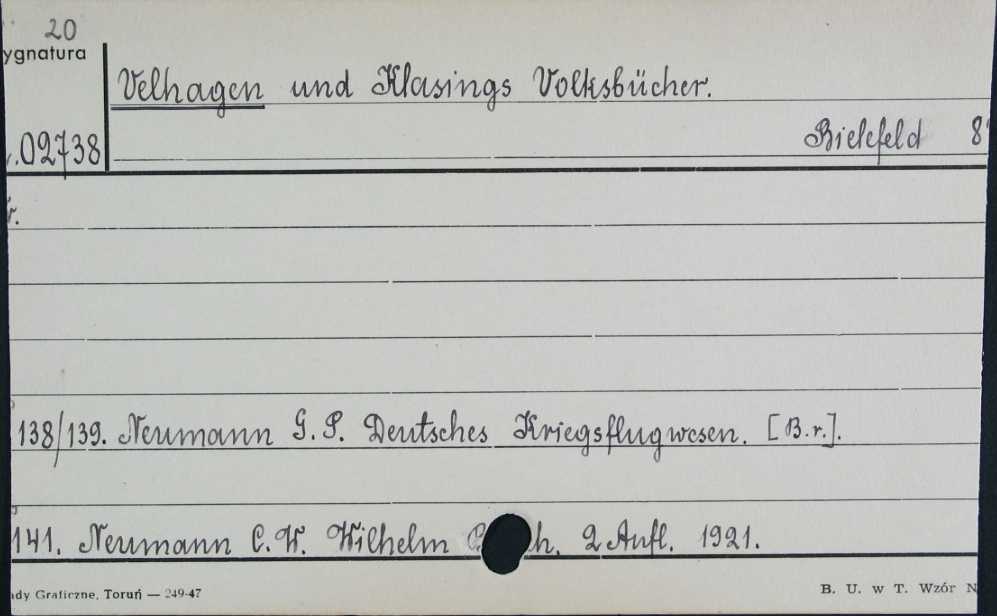 20
ygnatura
Velhagen und Klasings Volksbücher.
Bielefeld 8°
.02738
r.
138/139. Neumann G. P. Deutsches Kriegsflugwesen. [B.r.].
141. Neumann C. W. Wilhelm h. 2 Aufl. 1921.
ady Graficzne, Toruń — 249-47
B. U. w T. Wzór N